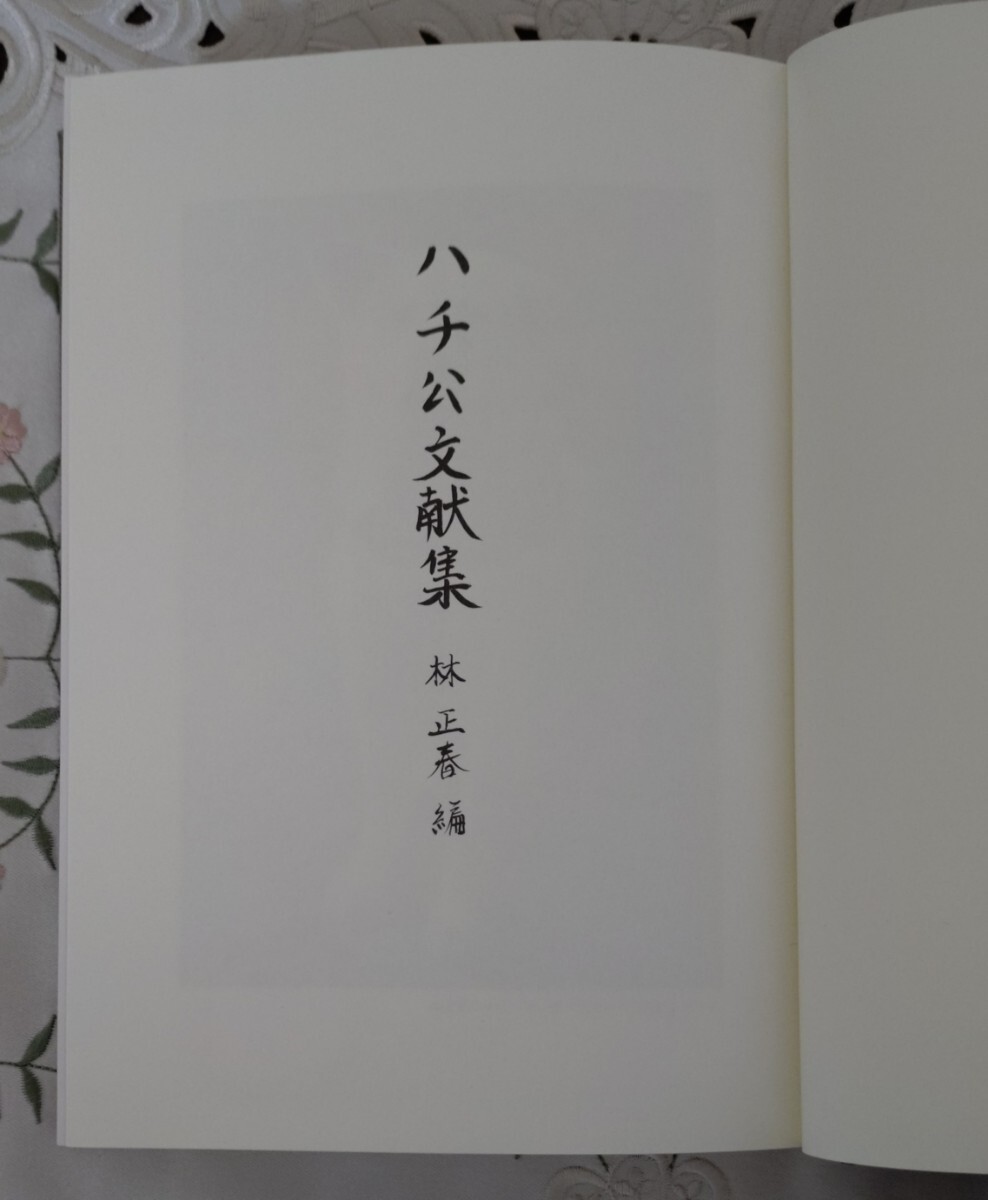 ハチ公文献集 林正春編